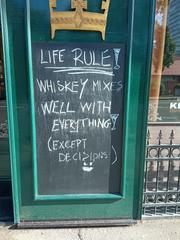 LIFE RULE!
WHISKEY MIXES
WELL WITH
EVERYTHING!
(EXCEPT
DECISIONS)